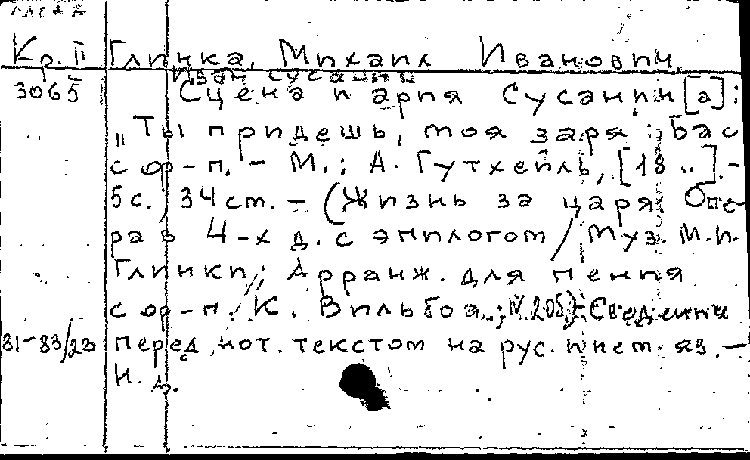 Кр. II Глинка, Михаил Иванович.
Иван Сусанин
3065 Сцена и ария Сусанин[а]:
„Ты придешь, моя заря: Бас
с ор-п. – М.: А. Гутхейль, [18 ..]. –
5с., 34 ст. – (Жизнь за царя: Опе-
ра в 4-х д. с эпилогом / Муз. М.И.
Глинки; Арранж. для пения
с ор-п. К. Вильбоа.; N. 205). – Сведения
81-83/23 перед нот. текстом на рус. и нем. яз. –
Н. д.